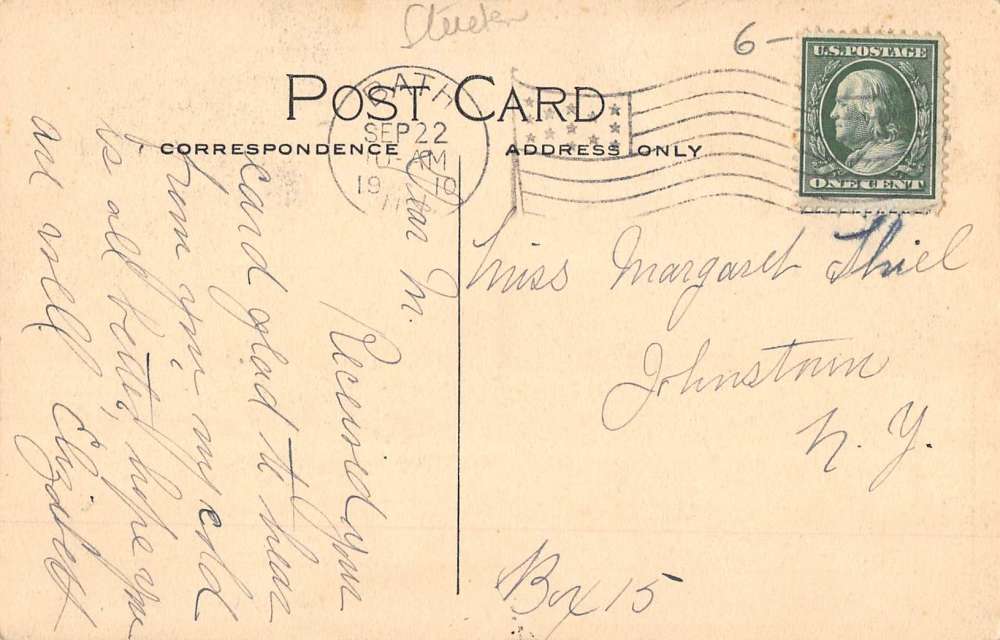 Steuben
6-
U.S. POSTAGE
ONE CENT
POST CARD
BATH
SEP 22
10-AM
1910
N.Y.
CORRESPONDENCE
ADDRESS ONLY
Dear M.
Received your
card glad to hear
from you. my cold
is all better, hope you
are well Elizabeth
Miss Margaret Thiel
Johnstown
N. Y.
Box 15